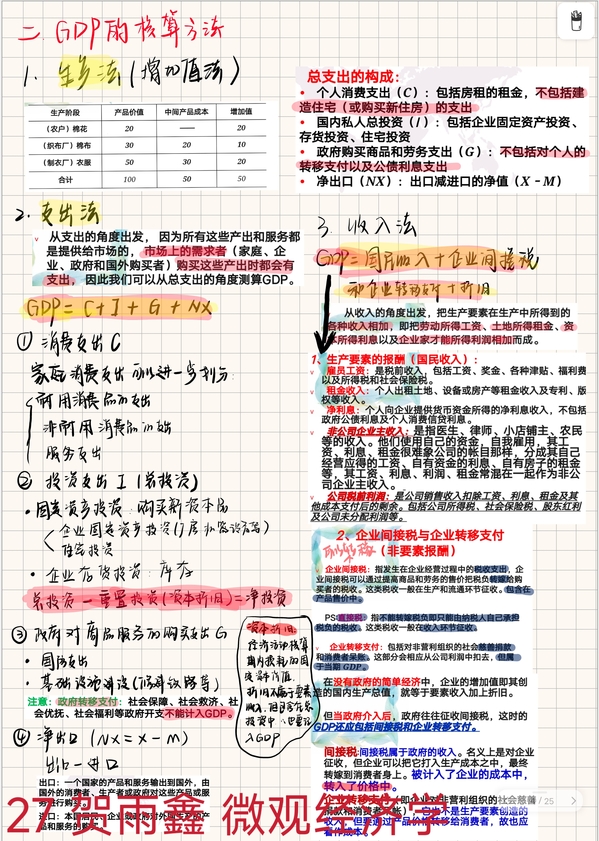 二. GDP的核算方法
1. 生产法(增加值法)
生产阶段 产品价值 中间产品成本 增加值
(农户)棉花 20 —— 20
(织布厂)棉布 30 20 10
(制衣厂)衣服 50 30 20
合计 100 50 50
总支出的构成:
• 个人消费支出(C):包括房租的租金,不包括建
造住宅(或购买新住房)的支出
• 国内私人总投资(I):包括企业固定资产投资、
存货投资、住宅投资
• 政府购买商品和劳务支出(G):不包括对个人的
转移支付以及公债利息支出
• 净出口(NX):出口减进口的净值(X - M)
2. 支出法
v 从支出的角度出发,因为所有这些产出和服务都
是提供给市场的,市场上的需求者(家庭、企
业、政府和国外购买者)购买这些产出时都会有
支出,因此我们可以从总支出的角度测算GDP。
GDP = C + I + G + NX
① 消费支出 C
家庭消费支出可以进一步划分:
耐用消费品的支出
非耐用消费品的支出
服务支出
② 投资支出 I (总投资)
• 固定资产投资:购买新资本品
住宅投资
• 企业存货投资:库存
总投资 - 重置投资(资本折旧) = 净投资
③ 政府对商品服务的购买支出 G
• 国防支出
• 基础设施建设(修建道路等)
注意:政府转移支付:社会保障、社会救济、社
会优抚、社会福利等政府开支不能计入GDP。
④ 净出口 (NX = X - M)
出口 - 进口
出口:一个国家的产品和服务输出到国外,由
国外的消费者、生产者或政府对这些产品或服
务进行购买。
产品和服务的购买
3. 收入法
GDP = 国民收入 + 企业间接税
和企业转移支付 + 折旧
从收入的角度出发,把生产要素在生产中所得到的
各种收入相加,即把劳动所得工资、土地所得租金、资
本所得利息以及企业家才能所得利润相加而成。
1、生产要素的报酬(国民收入):
v 雇员工资:是税前收入,包括工资、奖金、各种津贴、福利费
以及所得税和社会保险税。
v 租金收入:个人出租土地、设备或房产等租金收入及专利、版
权等收入。
v 净利息:个人向企业提供货币资金所得的净利息收入,不包括
政府公债利息及个人消费信贷利息。
v 非公司企业主收入:是指医生、律师、小店铺主、农民
等的收入。他们使用自己的资金,自我雇用,其工
资、利息、租金很难象公司的帐目那样,分成其自己
经营应得的工资、自有资金的利息、自有房子的租金
等,其工资、利息、利润、租金常混在一起作为非公
司企业主收入。
v 公司税前利润:是公司销售收入扣除工资、利息、租金及其
他成本支付后的剩余。包括公司所得税、社会保险税、股东红利
及公司未分配利润等。
2、企业间接税与企业转移支付
(非要素报酬)
企业间接税:指发生在企业经营过程中的税收支出,企
业间接税可以通过提高商品和劳务的售价把税负转嫁给购
买者的税收。这类税收一般在生产和流通环节征收。包含在
产品售价中。
PS:直接税:指不能转嫁税负即只能由纳税人自己承担
税负的税收。这类税收一般在收入环节征收。
v 企业转移支付:包括对非营利组织的社会慈善捐款
和消费者呆账。这部分会相应从公司利润中扣去,但属
于当期 GDP。
在没有政府的简单经济中,企业的增加值即其创
造的国内生产总值,就等于要素收入加上折旧。
但当政府介入后,政府往往征收间接税,这时的
GDP还应包括间接税和企业转移支付。
间接税:间接税属于政府的收入。名义上是对企业
征收,但企业可以把它打入生产成本之中,最终
转嫁到消费者身上。被计入了企业的成本中,
转入了价格中。
收入,但要通过产品价格转移给消费者,故也应
看作成本。
/ 25
27 贺雨鑫 微观经济学